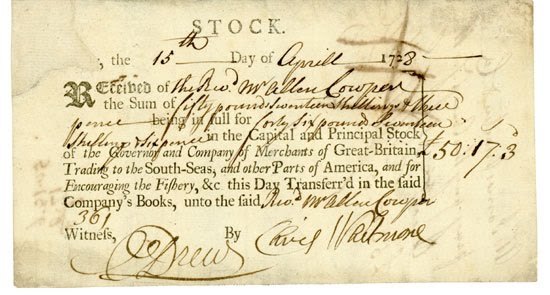 STOCK.
the 15th Day of Aprill 1728
Received of the Revd. Mr Allen Cowper
the Sum of fifty pound Seventeen Shillings & three
pence being in full for forty Six pound Seventeen
Shillings & Six pence in the Capital and Principal Stock
of the Governor and Company of Merchants of Great-Britain,
Trading to the South-Seas, and other Parts of America, and for
Encouraging the Fishery, &c. this Day Transferr'd in the said
Company's Books, unto the said Revd. Mr Allen Cowper
£50:17:3
361
Witness, By
Drew Whitmore